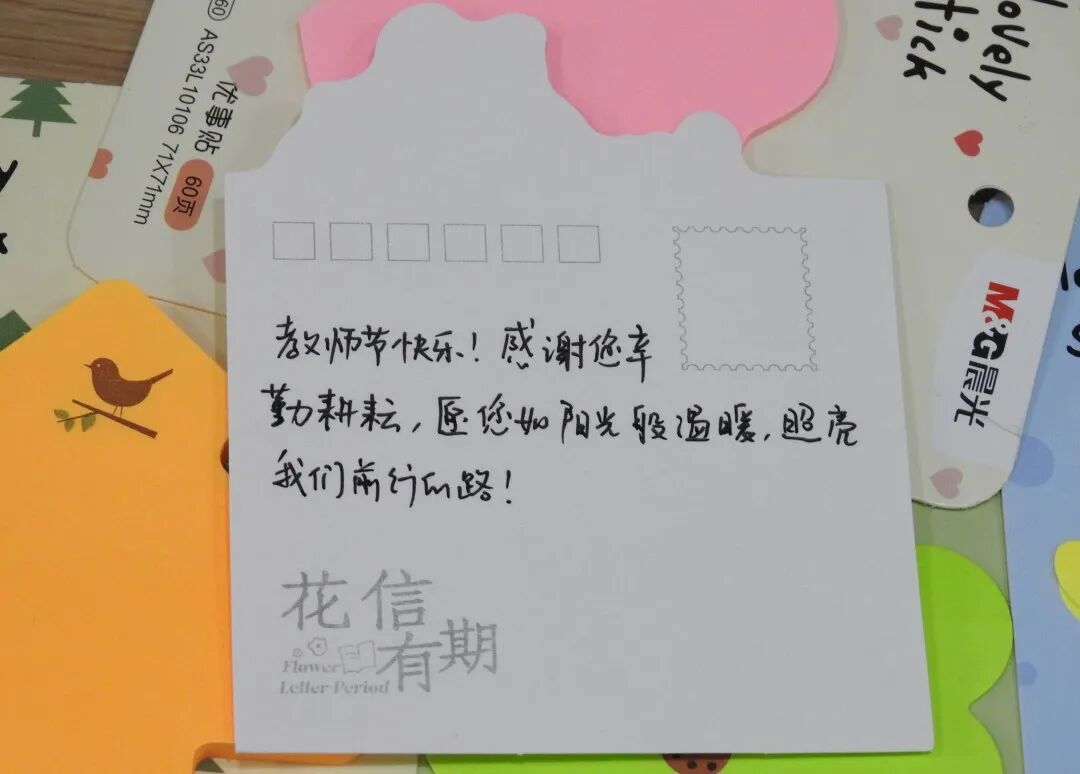 60 AS33L10106 71X71mm
优事贴 60页
lovely
stick
M&G晨光
教师节快乐！感谢您辛
勤耕耘，愿您如阳光般温暖，照亮
我们前行的路！
花信
有期
Flower
Letter Period